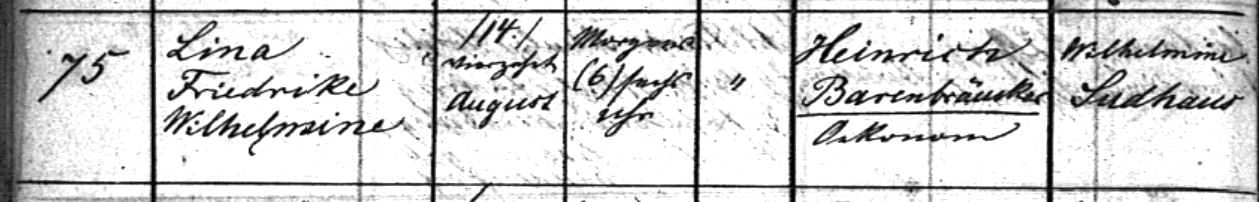 75
Lina
Friedrike
Wilhelmine
/14./
vierzehnt
August
Morgens
(6) sechs
Uhr
"
Heinrich
Barenbräucker
Oekonom
Wilhelmine
Sudhaus